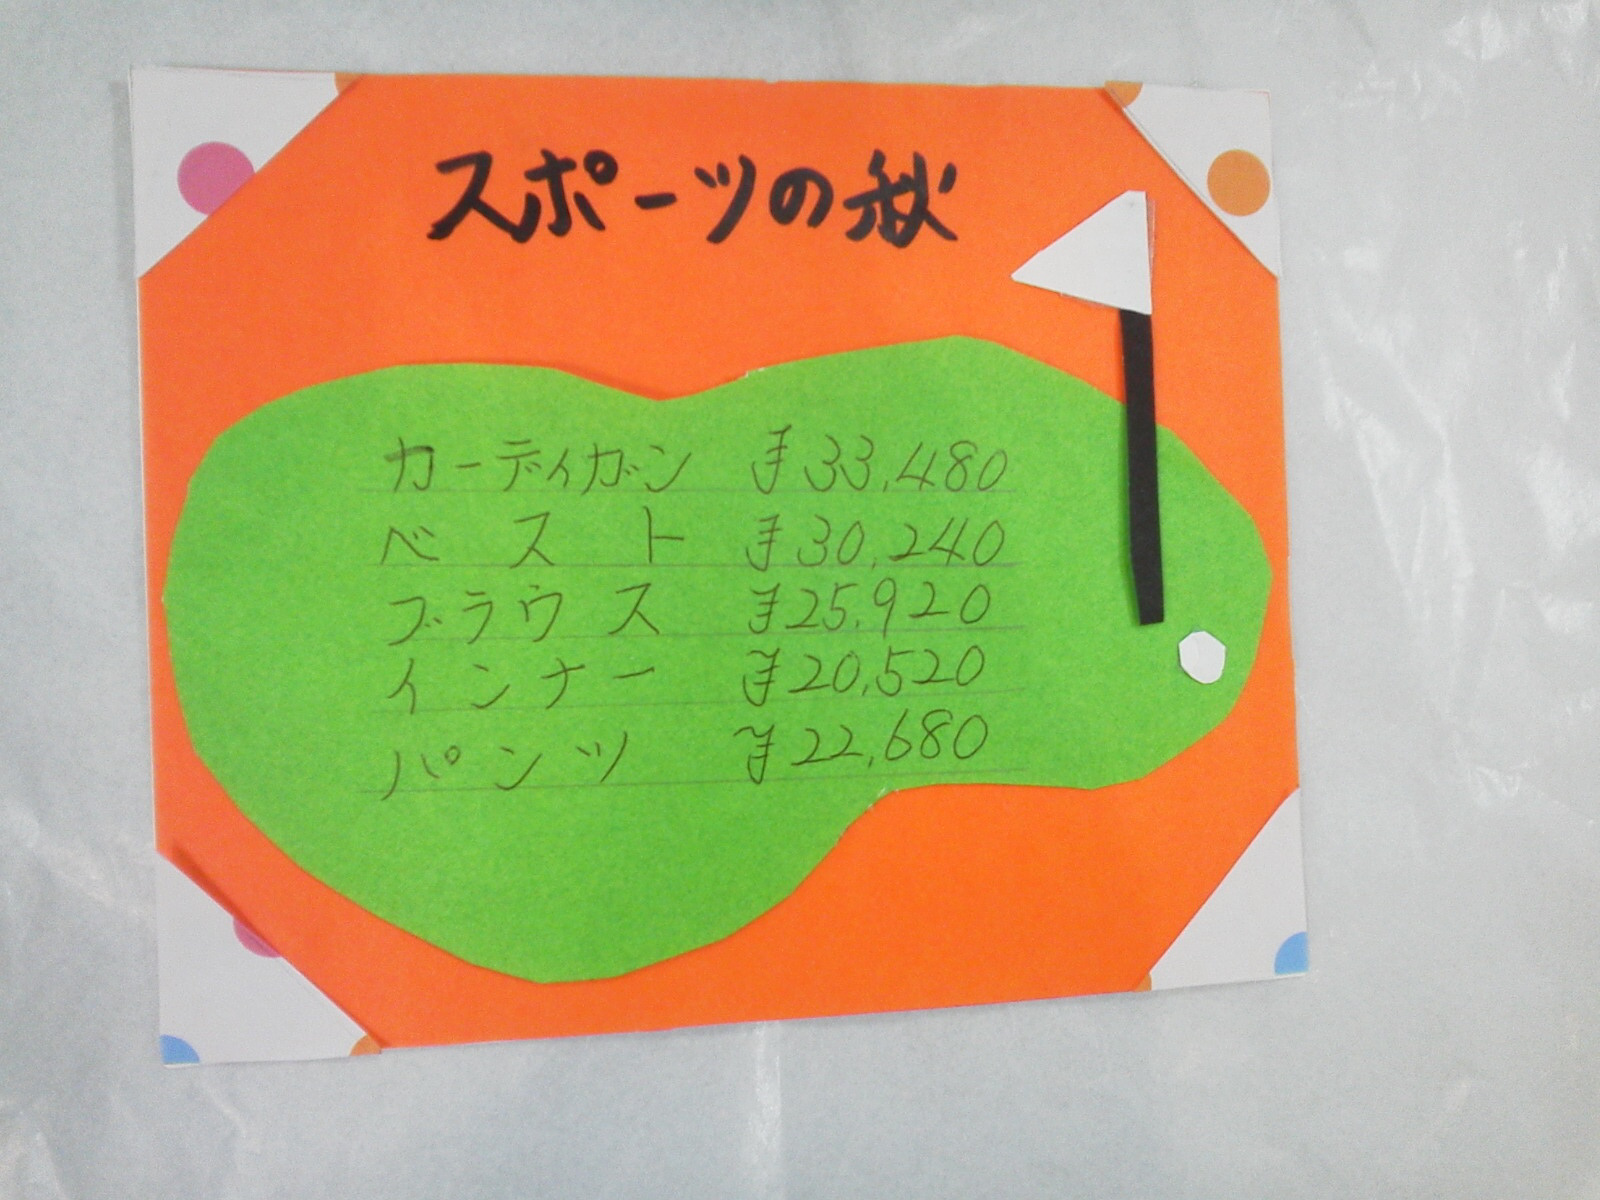 スポーツの秋
カーディガン ¥33,480
ベスト ¥30,240
ブラウス ¥25,920
インナー ¥20,520
パンツ ¥22,680